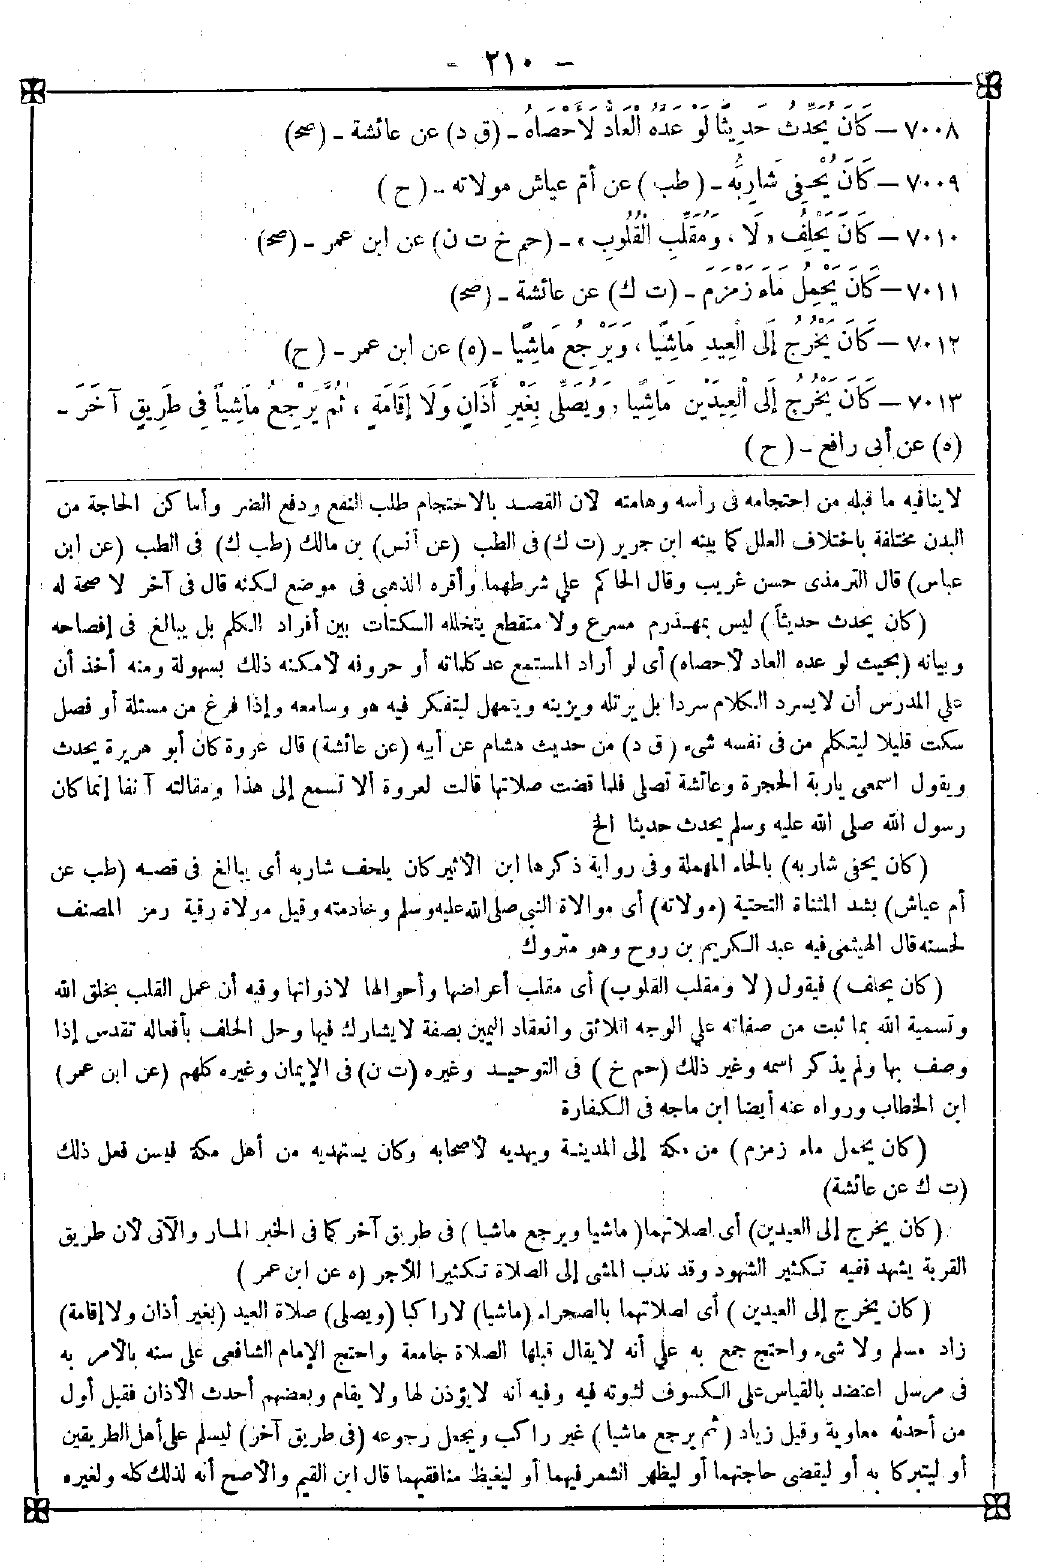 - ٢١٠ -
٧٠٠٨ – كَانَ يُحَدِّثُ حَدِيثًا لَوْ عَدَّهُ الْعَادُّ لَأَحْصَاهُ - (ق د) عن عائشة - (صح)
٧٠٠٩ – كَانَ يُحْفِى شَارِبَهُ - (طب) عن أم عياش مولاته - (ح)
٧٠١٠ – كَانَ يَحْلِفُ «لَا، وَمُقَلِّبِ الْقُلُوبِ» - (حم خ ت ن) عن ابن عمر - (صح)
٧٠١١ – كَانَ يَحْمِلُ مَاءَ زَمْزَمَ - (ت ك) عن عائشة - (صح)
٧٠١٢ – كَانَ يَخْرُجُ إِلَى الْعِيدِ مَاشِيًا، وَيَرْجِعُ مَاشِيًا - (ه) عن ابن عمر - (ح)
٧٠١٣ – كَانَ يَخْرُجُ إِلَى الْعِيدَيْنِ مَاشِيًا، وَيُصَلِّى بِغَيْرِ أَذَانٍ وَلَا إِقَامَةٍ، ثُمَّ يَرْجِعُ مَاشِيًا فِى طَرِيقٍ آخَرَ -
(ه) عن أبى رافع - (ح)
لاينافيه ما قبله من احتجامه فى رأسه وهامته لان القصد بالاحتجام طلب النفع ودفع الضر وأماكن الحاجة من
البدن مختلفة باختلاف العلل كما بينه ابن جرير (ت ك) فى الطب (عن أنس) بن مالك (طب ك) فى الطب (عن ابن
عباس) قال الترمذى حسن غريب وقال الحاكم على شرطهما وأقره الذهبى فى موضع لكنه قال فى آخر لا صحة له
(كان يحدث حديثاً) ليس بمهذرم مسرع ولا متقطع يتخلله السكتات بين أفراد الكلم بل يبالغ فى إفصاحه
وبيانه (بحيث لو عده العاد لأحصاه) أى لو أراد المستمع عد كلماته أو حروفه لأمكنه ذلك بسهولة ومنه أخذ أن
على المدرس أن لايسرد الكلام سردا بل يرتله ويزينه ويتمهل ليتفكر فيه هو وسامعه وإذا فرغ من مسئلة أو فصل
سكت قليلا ليتكلم من فى نفسه شىء (ق د) من حديث هشام عن أبيه (عن عائشة) قال عروة كان أبو هريرة يحدث
ويقول اسمعى ياربة الحجرة وعائشة تصلى فلما قضت صلاتها قالت لعروة ألا تسمع إلى هذا ومقالته آنفا إنما كان
رسول الله صلى الله عليه وسلم يحدث حديثا الخ
(كان يحفى شاربه) بالحاء المهملة وفى رواية ذكرها ابن الأثير كان يلحف شاربه أى يبالغ فى قصه (طب عن
أم عياش) بشد المثناة التحتية (مولاته) أى موالاة النبى صلى الله عليه وسلم وخادمته وقيل مولاة رقية رمز المصنف
لحسنه قال الهيثمى فيه عبد الكريم بن روح وهو متروك
(كان يحلف) فيقول (لا ومقلب القلوب) أى مقلب أعراضها وأحوالها لاذواتها وفيه أن عمل القلب بخلق الله
وتسمية الله بما ثبت من صفاته على الوجه اللائق وانعقاد اليمين بصفة لايشارك فيها وحل الحلف بأفعاله تقدس إذا
وصف بها ولم يذكر اسمه وغير ذلك (حم خ) فى التوحيد وغيره (ت ن) فى الإيمان وغيره كلهم (عن ابن عمر)
ابن الخطاب ورواه عنه أيضا ابن ماجه فى الكفارة
(كان يحمل ماء زمزم) من مكة إلى المدينة ويهديه لأصحابه وكان يستهديه من أهل مكة فيسن فعل ذلك
(ت ك عن عائشة)
(كان يخرج إلى العيدين) أى لصلاتهما (ماشيا ويرجع ماشيا) فى طريق آخر كما فى الخبر المار والآتى لأن طريق
القربة يشهد ففيه تكثير الشهود وقد ندب المشى إلى الصلاة تكثيرا للأجر (ه عن ابن عمر)
(كان يخرج إلى العيدين) أى لصلاتهما بالصحراء (ماشيا) لاراكبا (ويصلى) صلاة العيد (بغير أذان ولا إقامة)
زاد مسلم ولا شىء واحتج جمع به على أنه لايقال قبلها الصلاة جامعة واحتج الإمام الشافعى على سنه بالأمر به
فى مرسل اعتضد بالقياس على الكسوف لثبوته فيه وفيه أنه لايؤذن لها ولا يقام وبعضهم أحدث الأذان فقيل أول
من أحدثه معاوية وقيل زياد (ثم يرجع ماشيا) غير راكب ويجعل رجوعه (فى طريق آخر) ليسلم على أهل الطريقين
أو ليتبركا به أو ليقضى حاجتهما أو ليظهر الشعر فيهما أو ليغيظ منافقيهما قال ابن القيم والأصح أنه لذلك كله ولغيره